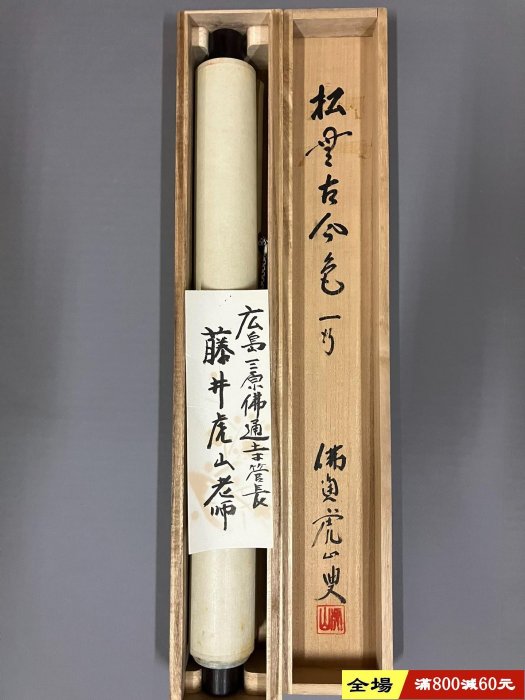 松無古今色 一行
佛通虎山叟
広島三原佛通寺管長
藤井虎山老師
全場
滿800減60元